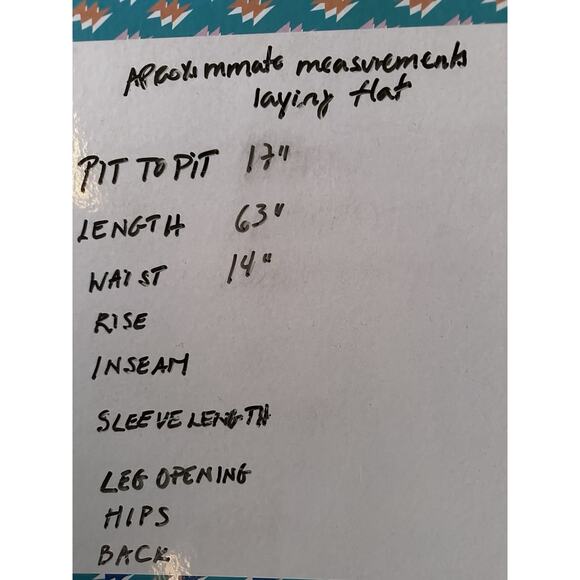 Aproximmate measurements
laying flat
PIT TO PIT 17"
LENGTH 63"
WAIST 14"
RISE
INSEAM
SLEEVE LENGTH
LEG OPENING
HIPS
BACK